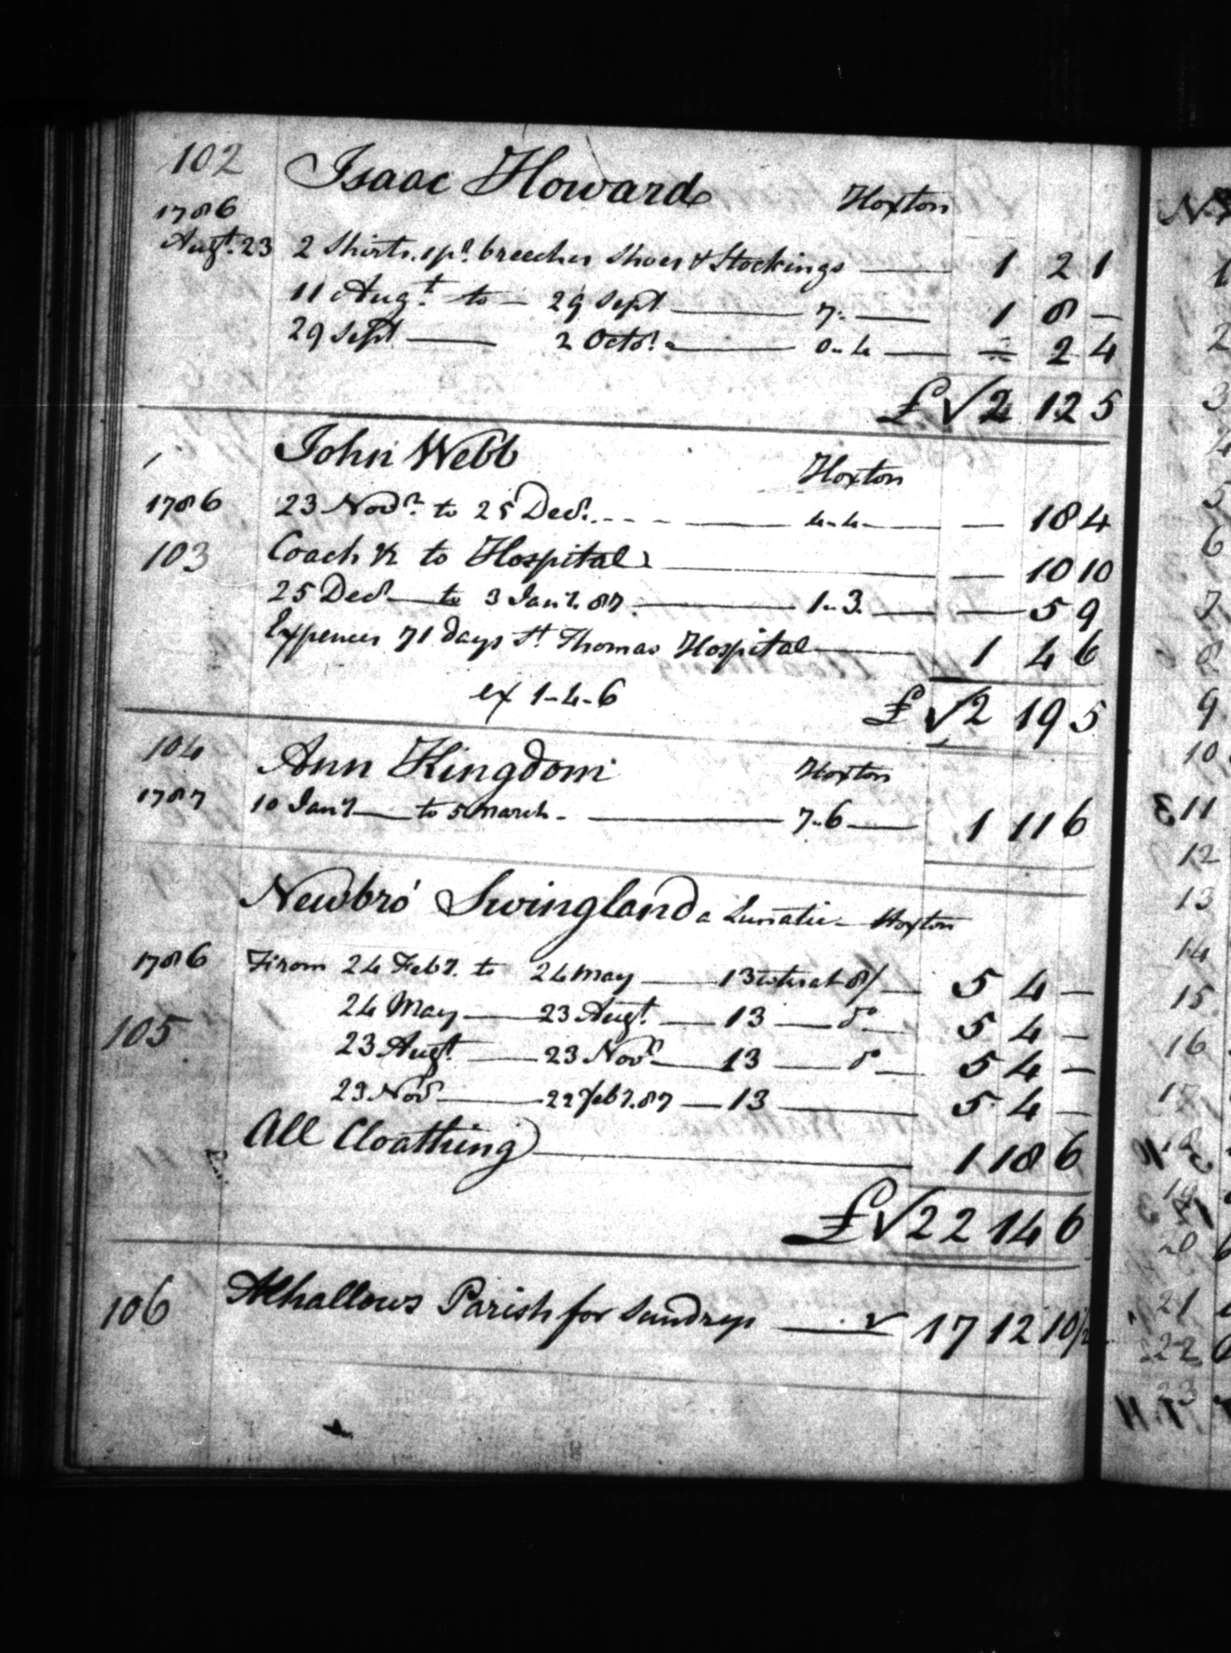 102 Isaac Howard Hoxton
1786
Augt. 23 2 Shirts. 1 pr. breeches Shoes & Stockings 1 2 1
11 Augt. to 29 Sept 7.. 1 8 —
29 Sept 2 Octor. 0..4 — 2 4
£ √2 12 5
John Webb Hoxton
1786 23 Novr. to 25 Decr. 4..4 — 18 4
103 Coach &c to Hospital — 10 10
25 Decr to 3 Jany. 87. 1..3. — 5 9
Expences 71 days St. Thomas Hospital 1 4 6
ex 1-4-6 £ √2 19 5
104 Ann Kingdom Hoxton
1787 10 Jany to 5 March 7..6 1 11 6
Newbro' Swingland a Lunatic Hoxton
1786 From 24 Feby. to 24 May 13 weeks at 8/ 5 4 —
24 May 23 Augt. 13 do 5 4 —
105 23 Augt. 23 Novr. 13 do 5 4 —
23 Novr 22 Feby. 87 13 5 4 —
All Cloathing 1 18 6
£ √22 14 6
106 Alhallows Parish for Sundrys √ 17 12 10½
N
1
2
3
4
5
6
7
8
9
10
11
12
13
14
15
16
17
18
19
20
21
22
23